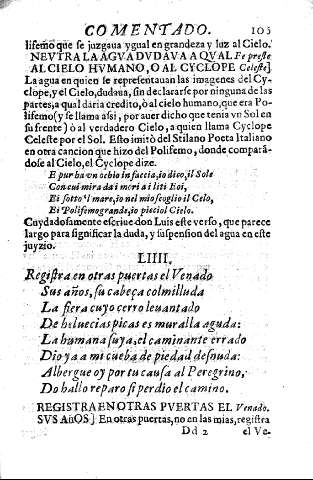 COMENTADO. 105
lifemo que se juzgaua ygual en grandeza y luz al Cielo.
NEVTRA LA AGVA DVDAVA A QVAL Fe preste
AL CIELO HVMANO, O AL CYCLOPE Celeste].
La agua en quien se representauan las imagenes del Cy-
clope, y el Cielo, dudaua, sin declararse por ninguna de las
partes, a qual daria credito, ò al cielo humano, que era Po-
lifemo (y se llama assi, por auer dicho que tenia vn Sol en
su frente) ò al verdadero Cielo, a quien llama Cyclope
Celeste por el Sol. Esto imitò del Stilano Poeta Italiano
en otra cancion que hizo del Polifemo, donde compará-
dose al Cielo, el Cyclope dize.
E pur ha vn'ochio in faccia, io dico, il Sole
Con cui mira da i mori a i liti Eoi,
Ei sotto'l mare, io nel mio scoglio il Celo,
Ei Polifemo grande, io picciol Cielo.
Cuydadosamente escriue don Luis este verso, que parece
largo para significar la duda, y suspension del agua en este
juyzio.
LIIII.
Registra en otras puertas el Venado
Sus años, su cabeça colmilluda
La fiera cuyo cerro leuantado
De heluecias picas es muralla aguda:
La humana suya, el caminante errado
Dio ya a mi cueba de piedad desnuda:
Albergue oy por tu causa al Peregrino,
Do hallo reparo si perdio el camino.
REGISTRA EN OTRAS PVERTAS EL Venado.
SVS AñOS] En otras puertas, no en las mias, registra
Dd 2 el Ve-